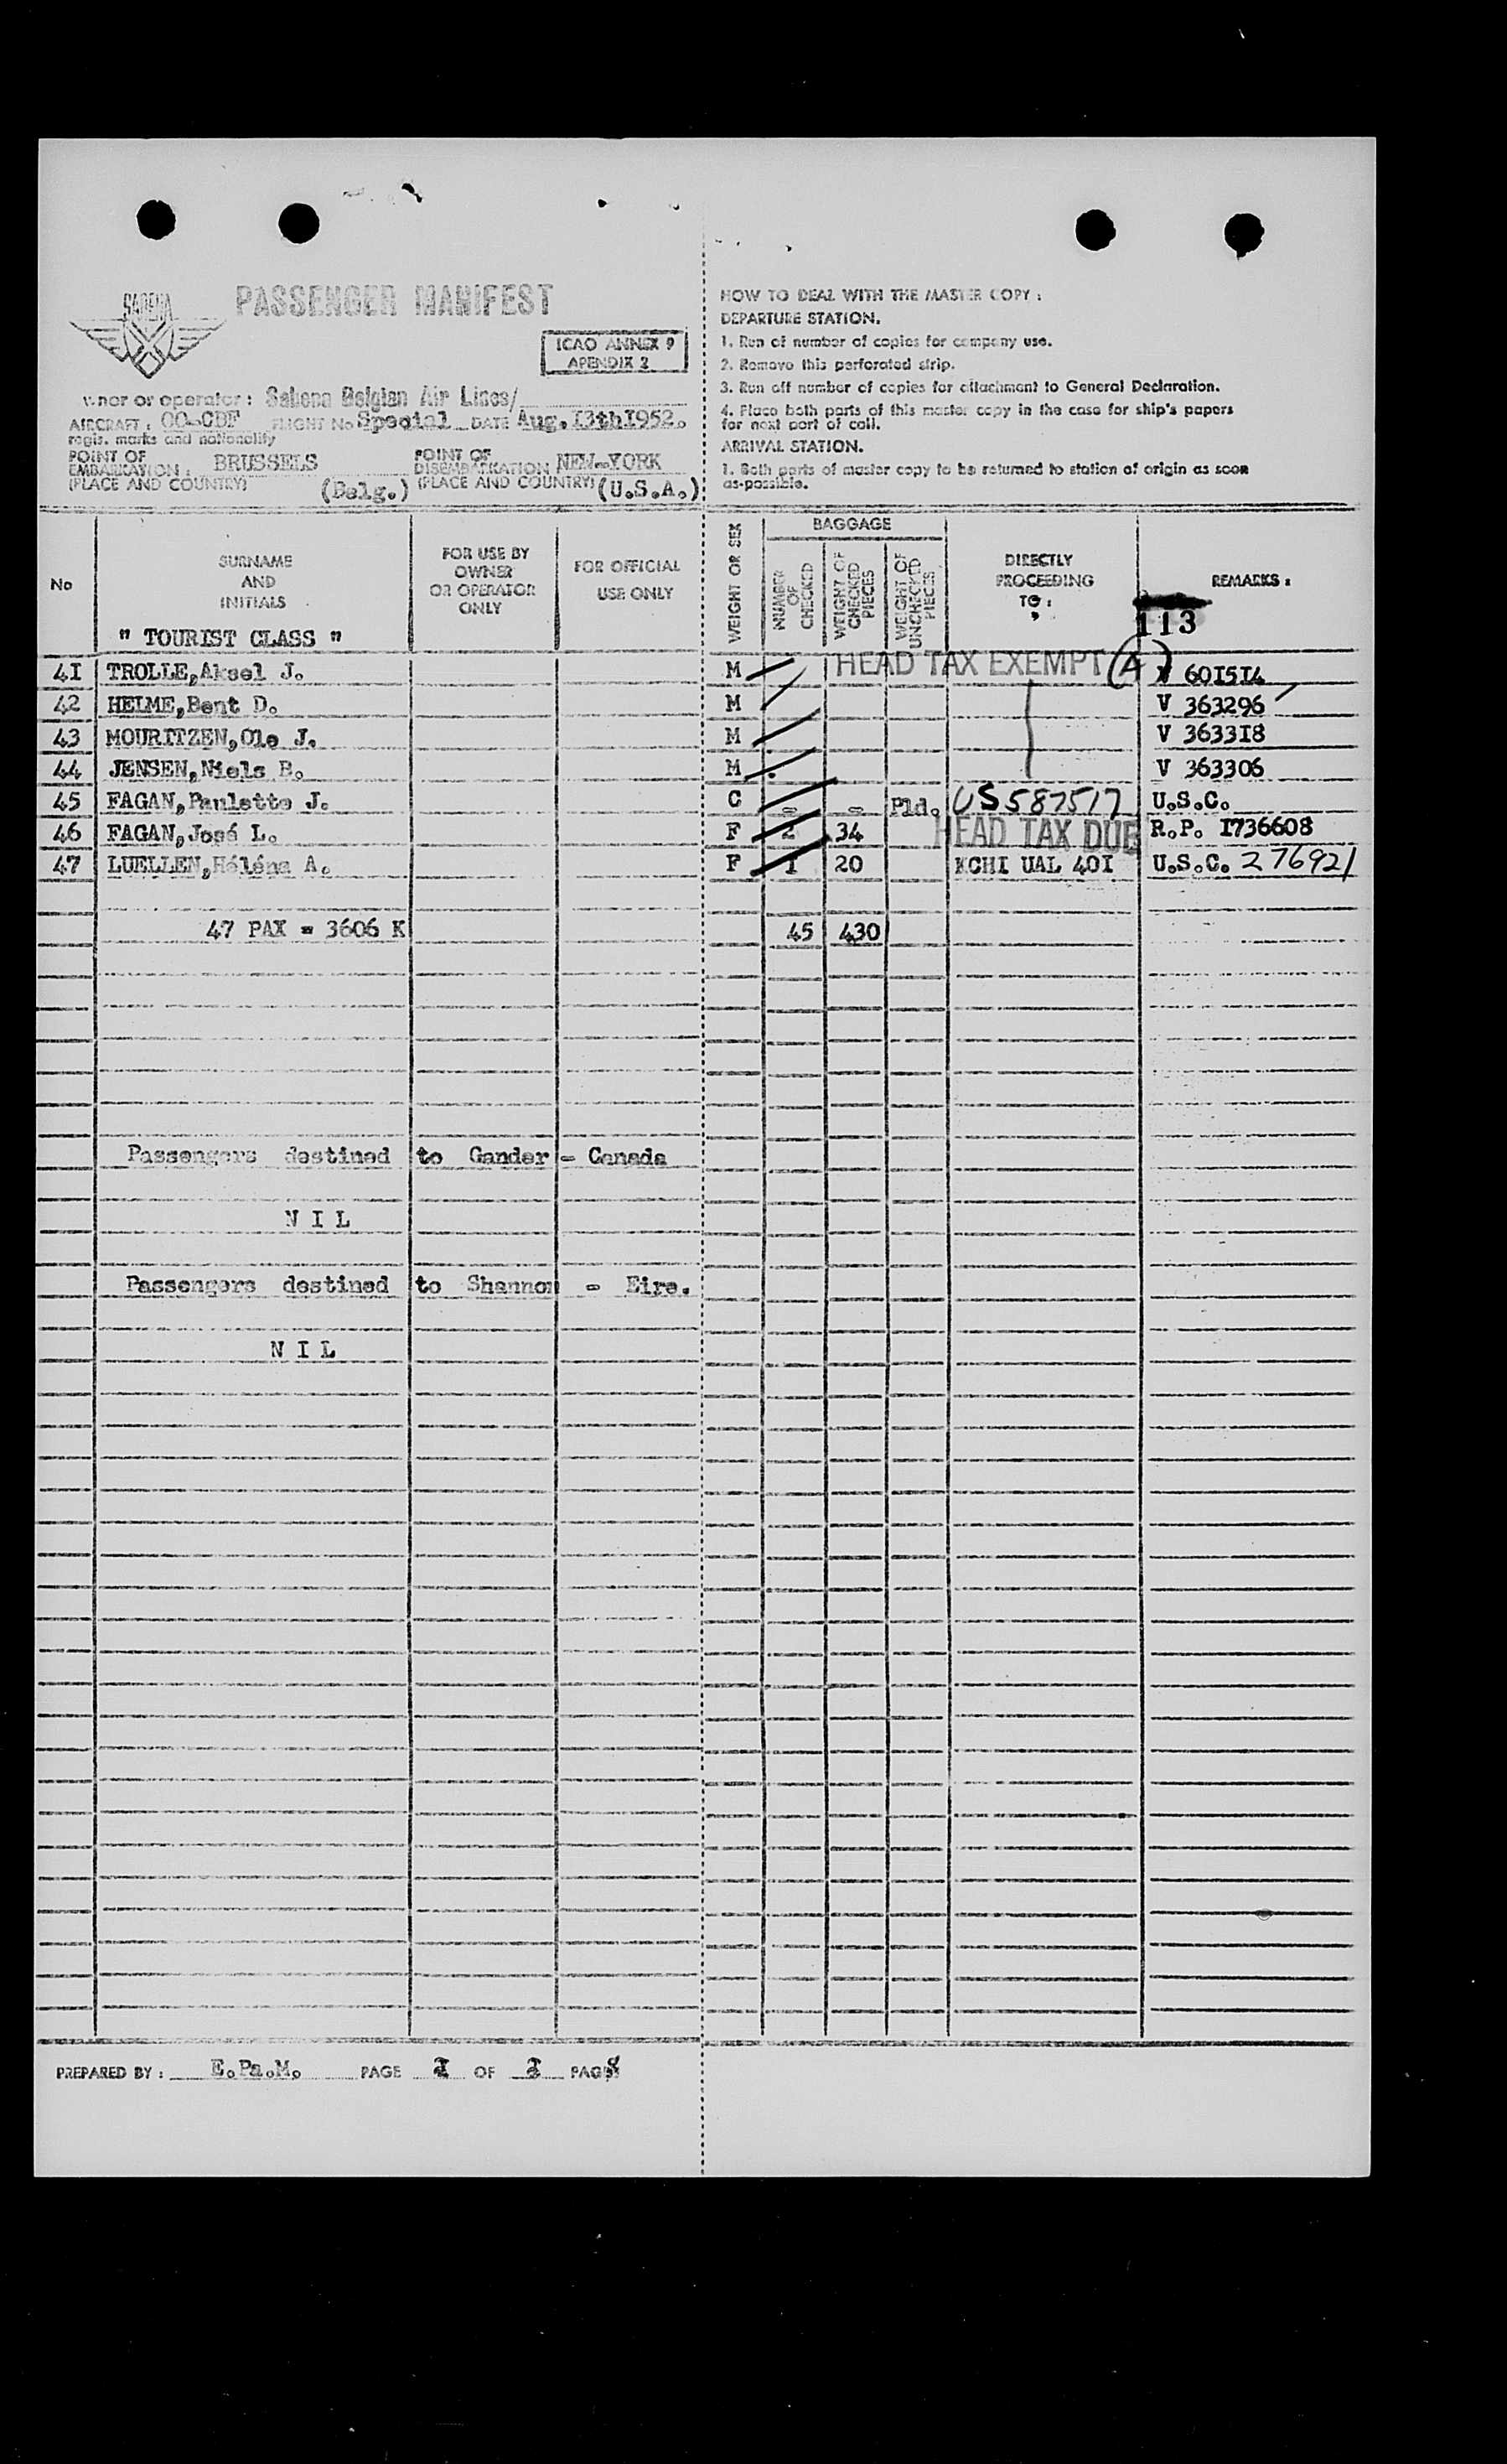 SABENA
PASSENGER MANIFEST
ICAO ANNEX 9
APENDIX 2
wner or operator : Sabena Belgian Air Lines/
AIRCRAFT : OO-CBF FLIGHT No Special DATE Aug.I3thI952.
regis. marks and nationality
POINT OF EMBARKATION : BRUSSELS
(PLACE AND COUNTRY) (Belg.)
POINT OF DISEMBARKATION NEW-YORK
(PLACE AND COUNTRY) (U.S.A.)
HOW TO DEAL WITH THE MASTER COPY :
DEPARTURE STATION.
1. Run of number of copies for company use.
2. Remove this perforated strip.
3. Run off number of copies for attachment to General Declaration.
4. Place both parts of this master copy in the case for ship's papers
for next port of call.
ARRIVAL STATION.
1. Both parts of master copy to be returned to station of origin as soon
as-possible.
No
SURNAME
AND
INITIALS
FOR USE BY
OWNER
OR OPERATOR
ONLY
FOR OFFICIAL
USE ONLY
WEIGHT OR SEX
BAGGAGE
NUMBER OF CHECKED
WEIGHT OF CHECKED PIECES
WEIGHT OF UNCHECKED PIECES
DIRECTLY
PROCEEDING
TO :
REMARKS :
113
" TOURIST CLASS "
HEAD TAX EXEMPT (A)
4I TROLLE,Aksel J. M V 60I5I4
42 HELME,Bent D. M V 363296
43 MOURITZEN,Ole J. M V 3633I8
44 JENSEN,Niels B. M V 363306
45 FAGAN,Paulette J. C - - Pld. US587517 U.S.C.
46 FAGAN,José L. F 2 34 HEAD TAX DUE R.P. I736608
47 LUELLEN,Héléna A. F I 20 KCHI UAL 40I U.S.C. 276921
47 PAX = 3606 K 45 430
Passengers destined to Gander - Canada
N I L
Passengers destined to Shannon - Eire.
N I L
PREPARED BY : E.Pa.M. PAGE OF PAGS